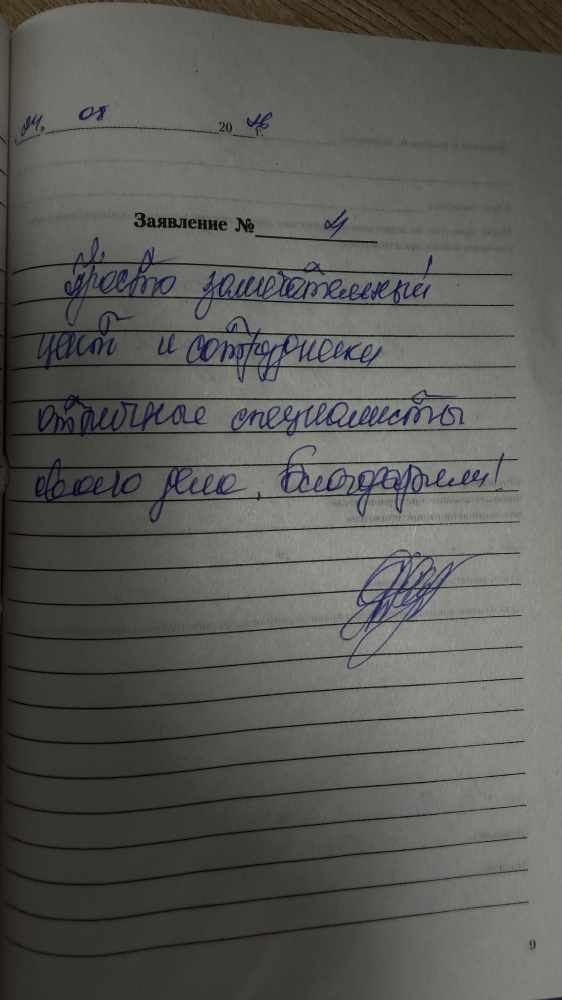 24. 08 2026 г.
Заявление № 4
Просто замечательный!
цент и сотрудники
отличные специалисты
своего дела, благодарим!
9